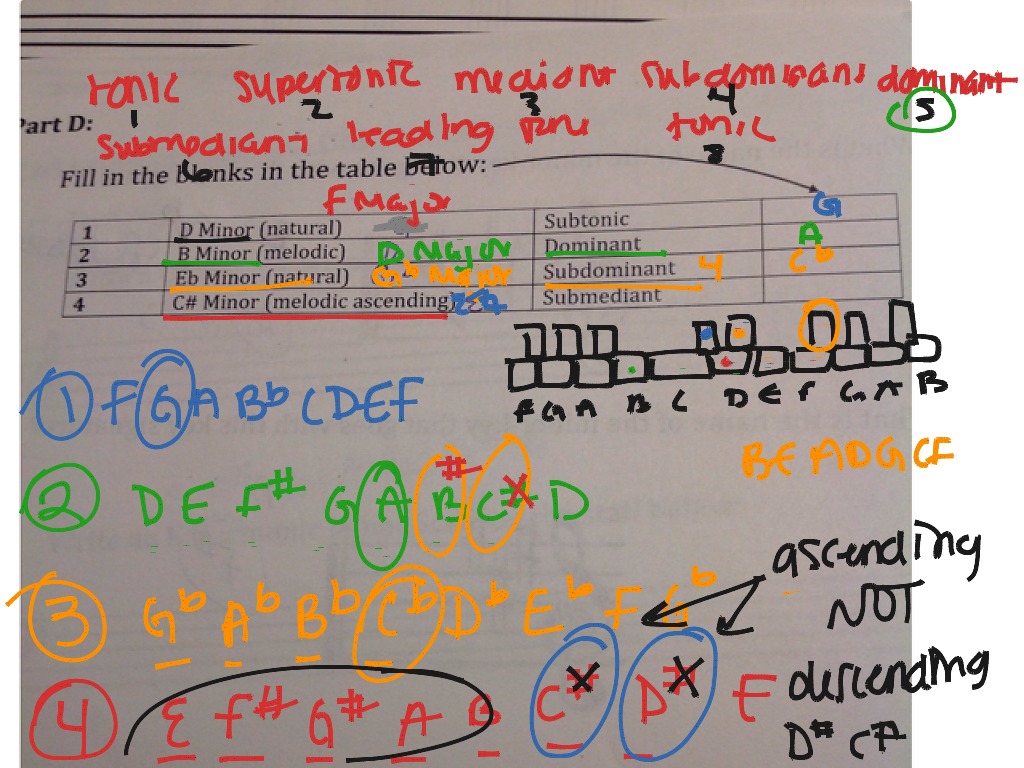 tonic supertonic mediant subdominant dominant
1 2 3 4 5
Part D:
submediant leading tone tonic
6 7 8
Fill in the blanks in the table below:
F Major
G
1 D Minor (natural) Subtonic
A
2 B Minor (melodic) D Major Dominant
3 Eb Minor (natural) Gb Major Subdominant 4 Cb
4 C# Minor (melodic ascending) Submediant
F G A B C D E F G A B
1 F G A Bb C D E F
B E A D G C F
2 D E F# G A B# C# D
ascending
NOT
3 Gb Ab Bb Cb Db Eb F Gb
descending
4 E F# G# A B C# D# E
D# C#